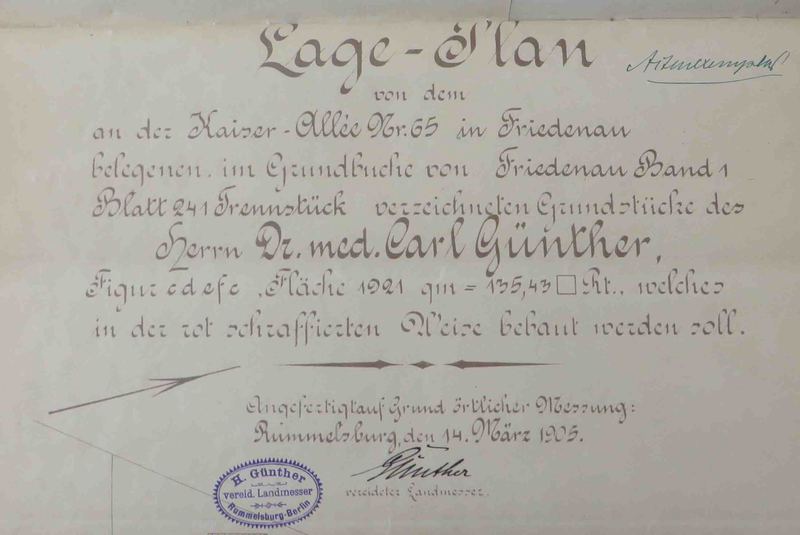 Lage-Plan
Aktenexemplar
von dem
an der Kaiser-Allée Nr. 65 in Friedenau
belegenen, im Grundbuche von Friedenau Band 1
Blatt 241 Trennstück verzeichneten Grundstücke des
Herrn Dr. med. Carl Günther,
Figur c d e f c, Fläche 1921 qm = 135,43 □ Rt., welches
in der rot schraffierten Weise bebaut werden soll.
Angefertigt auf Grund örtlicher Messung:
Rummelsburg, den 14. März 1905.
Günther
vereideter Landmesser.
H. Günther
vereid. Landmesser
Rummelsburg-Berlin